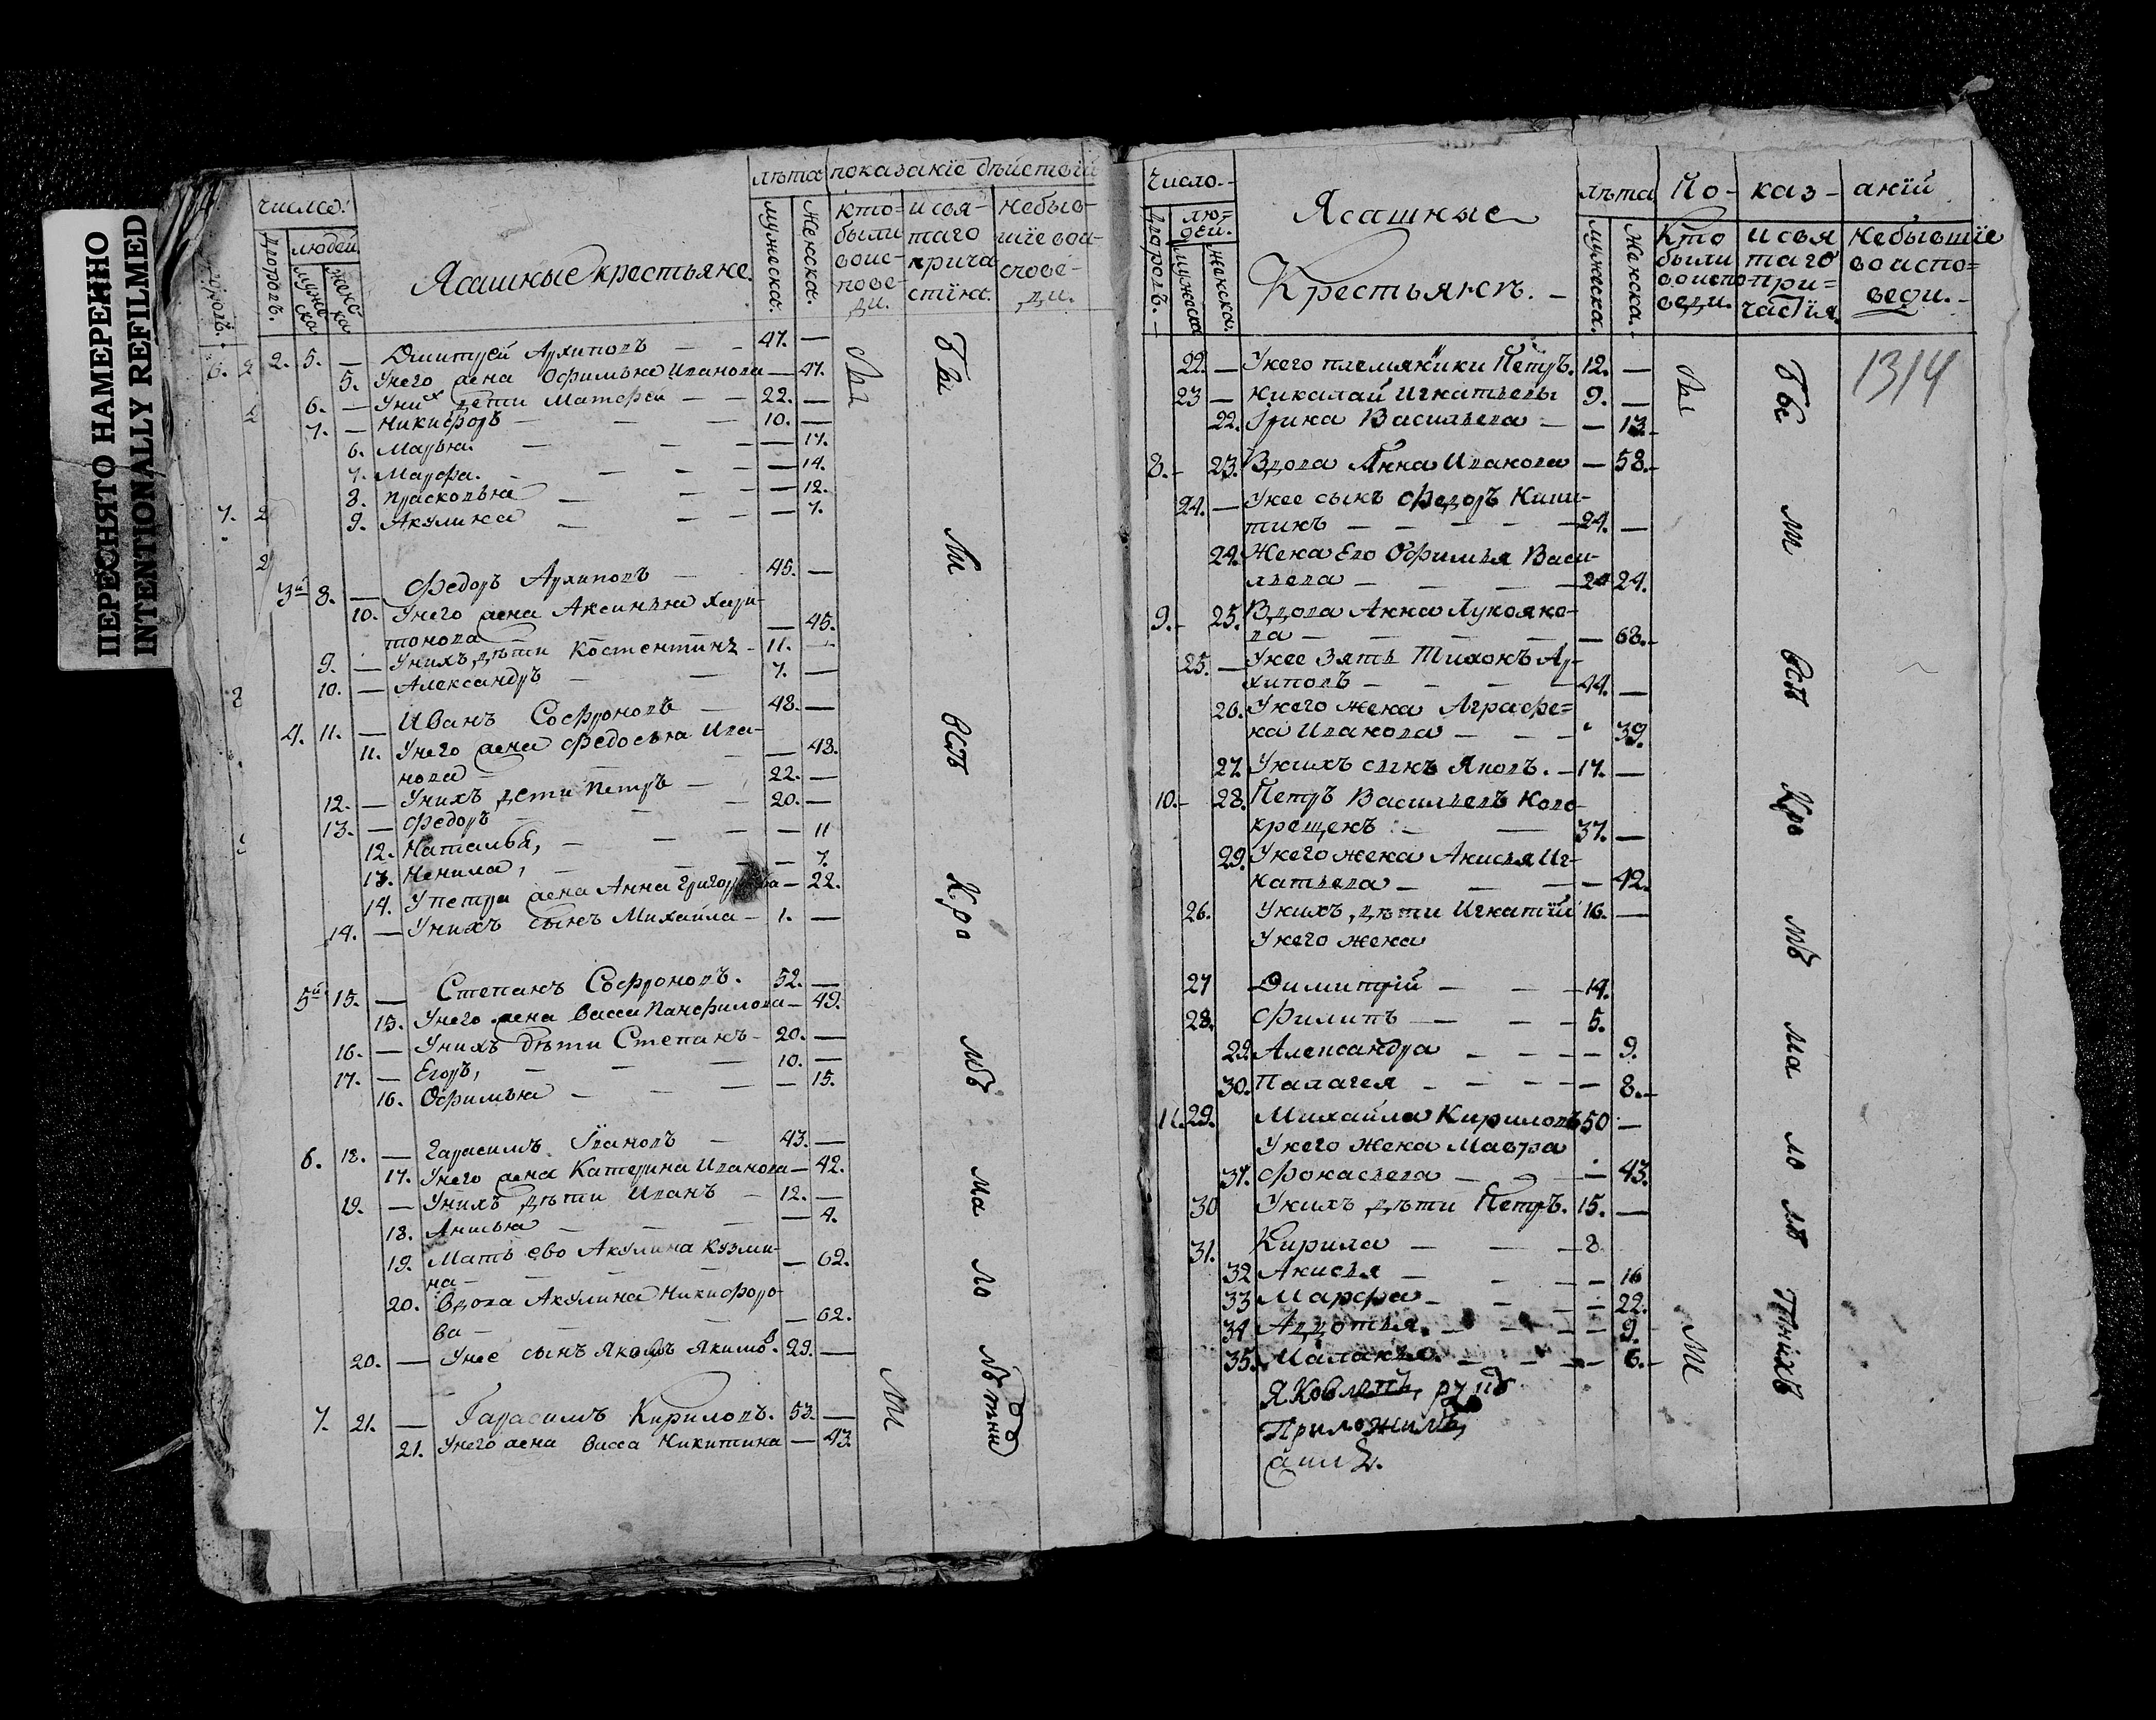 ПЕРЕСНЯТО НАМЕРЕННО
INTENTIONALLY REFILMED
число.
лѣта показанїе дѣйствїй
дворовъ. людей
мужеска женска
Ясашные крестьяне
мужеска. женска.
кто были воисповеди.
и святаго причастїя.
небывшïе воисповѣди.
2. 5. — Дмитрей Архиповъ — 47. —
5. Унего жена Офимья Иванова — 47.
6. — Уних дети Матфей — 22. —
7. — Никифоръ — 10. —
6. Марья. — 17.
7. Марфа. — 14.
8. Прасковья — 12.
9. Акулина — 7.
3й 8. — Федоръ Архиповъ — 45. —
10. Унего жена Аксинья Хари-
тонова — 45.
9. — Унихъ дѣти Костентинъ — 11. —
10. — Александръ — 7. —
4. 11. — Иванъ Софроновъ — 48. —
11. Унего жена Федосья Ива-
нова — 48.
12. — Унихъ дети Петръ — 22. —
13. — Федоръ — 20. —
12. Наталья, — 11
13. Ненила, — 7.
14. Упетра жена Анна — 22.
14. — Унихъ сынъ Михайла — 1. —
5й 15. — Степанъ Софроновъ. 52. —
15. Унего жена Васса Панфилова — 49.
16. — Унихъ дѣти Степанъ — 20. —
17. — Егоръ, — 10. —
16. Офимья — 15.
6. 18. — Гарасимъ Ивановъ — 43. —
17. Унего жена Катерина Иванова — 42.
19. — Унихъ дѣти Иванъ — 12. —
18. Анисья — 4.
19. Мать ево Акулина Кузми-
на — 62.
20. Вдова Акулина Никифоро-
ва — 62.
20. — Унее сынъ Якимов. 29. —
7. 21. — Гарасимъ Кириловъ. 53. —
21. Унего жена Васса Никитина — 43.
число.
дворовъ. людей.
мужеска женска.
Ясашные
Крестьянъ.
лѣта
мужеска. женска.
По- каз- анïй
Кто были воисповеди.
и святаго причастïя.
Небывшïе воисповеди.
1314
22. — Унего племянники Петръ. 12. —
23 — Николай Игнатьевы 9. —
22. Ирина Васильева — 13.
8. 23. Вдова Анна Иванова — 58.
24. — Унее сынъ Федоръ Ники-
тинъ — 24. —
24. Жена Его Офимья Васи-
льева — 24.
9. 25. Вдова Анна
ва — 68.
25. — Унее зять Тихонъ Ар-
хиповъ — 44. —
26. Унего жена Аграфе-
на Иванова — 39.
27. Унихъ сынъ — 17. —
10. 28. Петръ Васильевъ Ново-
крещенъ — 37. —
29. Унего жена Анисья Иг-
натьева — 42.
26. Унихъ дѣти Игнатïй 16. —
Унего жена
27 Димитрïй — 14.
28. Филипъ — 5.
29. Александра — 9.
30. Палагея — 8.
11. 29. Михайла Кириловъ 50 —
Унего жена Мавра
31. — 43.
30 Унихъ дѣти Петръ. 15. —
31. Кирила — 8
32 Анисья — 16
33 Марфа — 22.
34 Авдотья. — 9.
35. Маланья. — 6.
Яковлевъ руку
Приложилъ